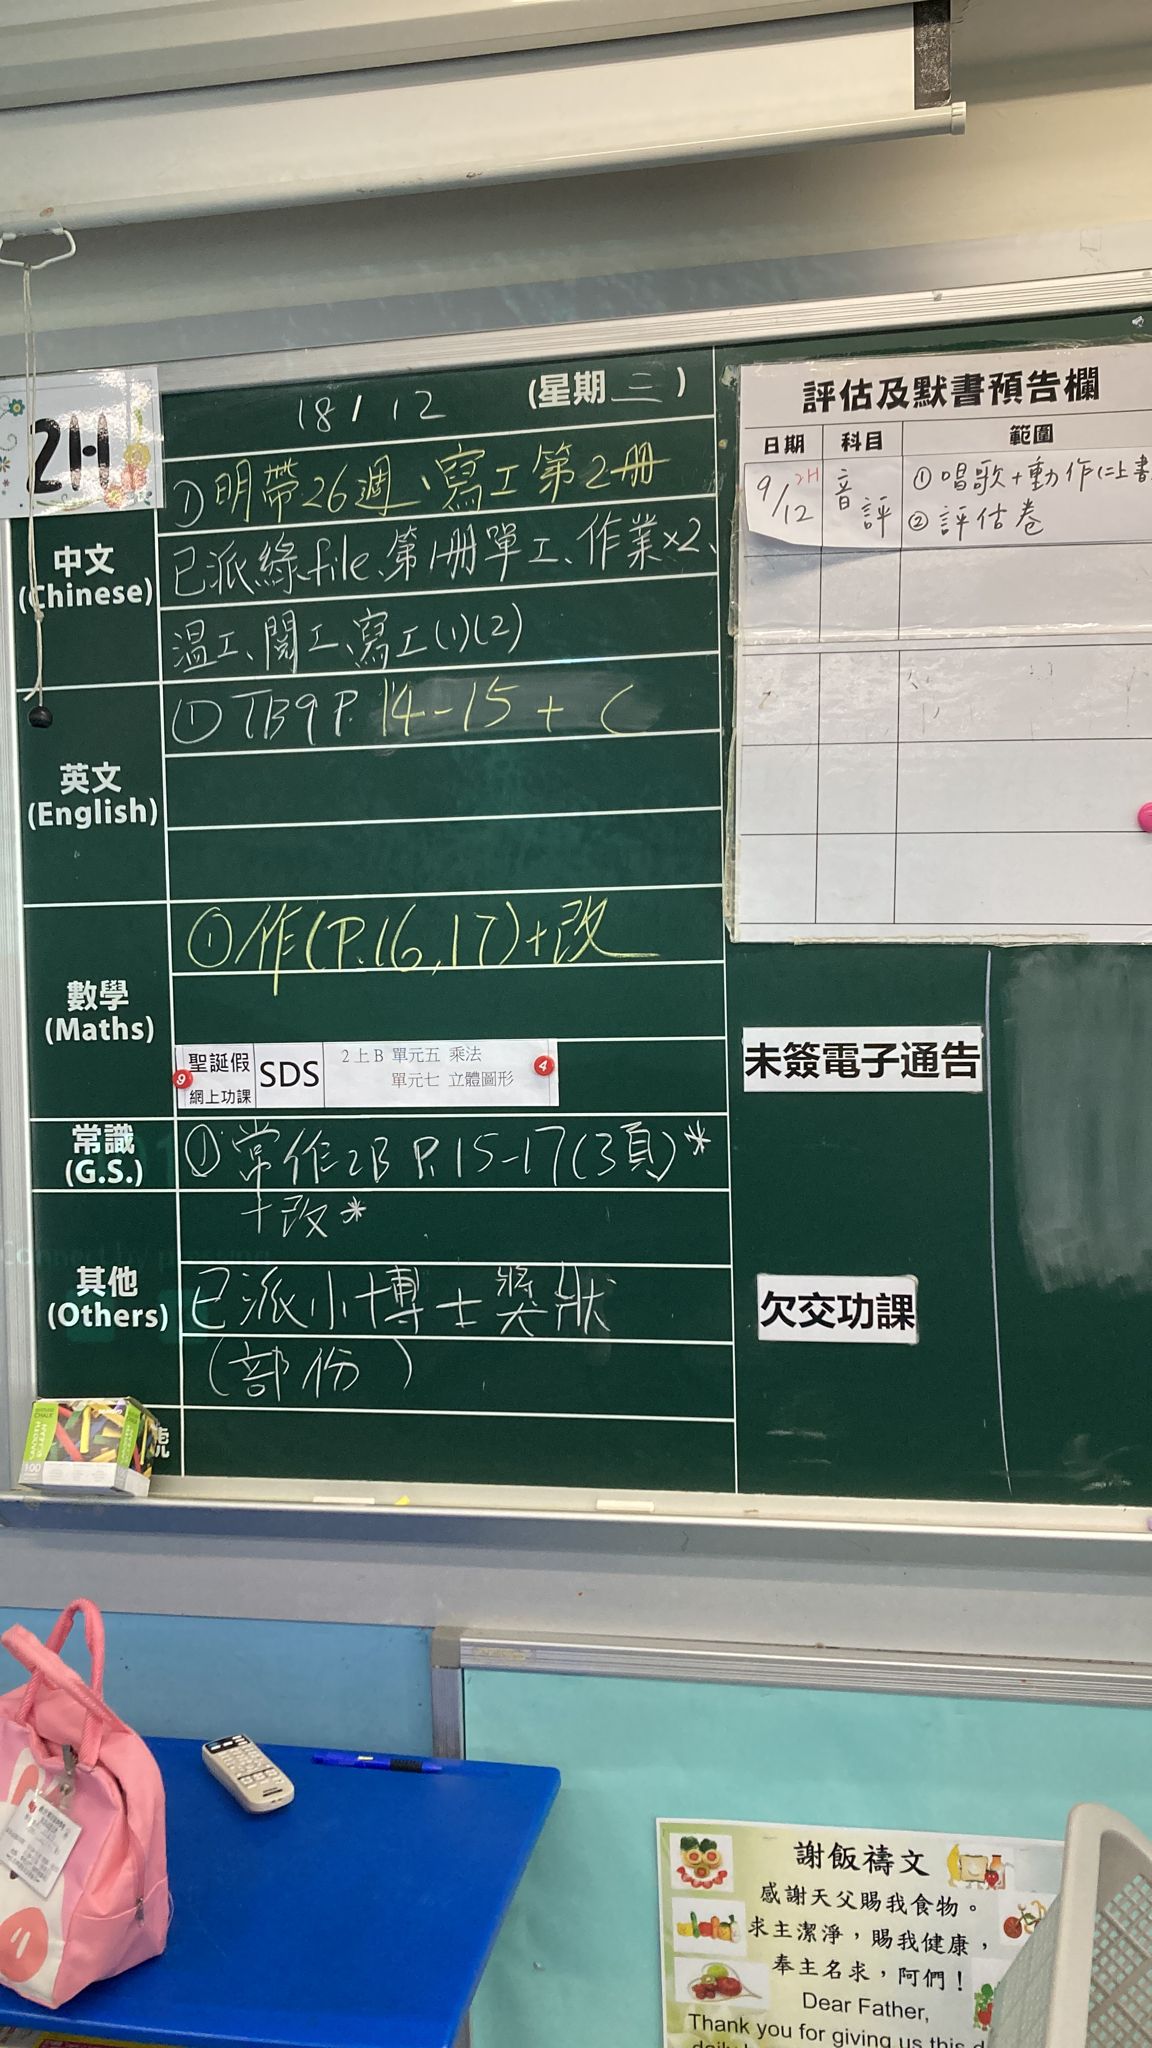 2H
18/12 (星期三)
中文
(Chinese)
①明帶26週、寫工第2冊
已派綠file、第1冊單工、作業×2、
溫工、閱工、寫工(1)(2)
英文
(English)
①TB9 P. 14-15 + C
數學
(Maths)
①作(P.16,17)+改
聖誕假
網上功課
SDS
2上B 單元五 乘法
單元七 立體圖形
9
4
常識
(G.S.)
①常作2B P.15-17(3頁)*
+改*
其他
(Others)
已派小博士獎狀
(部份)
號
評估及默書預告欄
日期 科目 範圍
9/12 2H 音評 ①唱歌+動作(上書
②評估卷
未簽電子通告
欠交功課
CHALK
100
謝飯禱文
感謝天父賜我食物。
求主潔淨，賜我健康，
奉主名求，阿們！
Dear Father,
Thank you for giving us this d